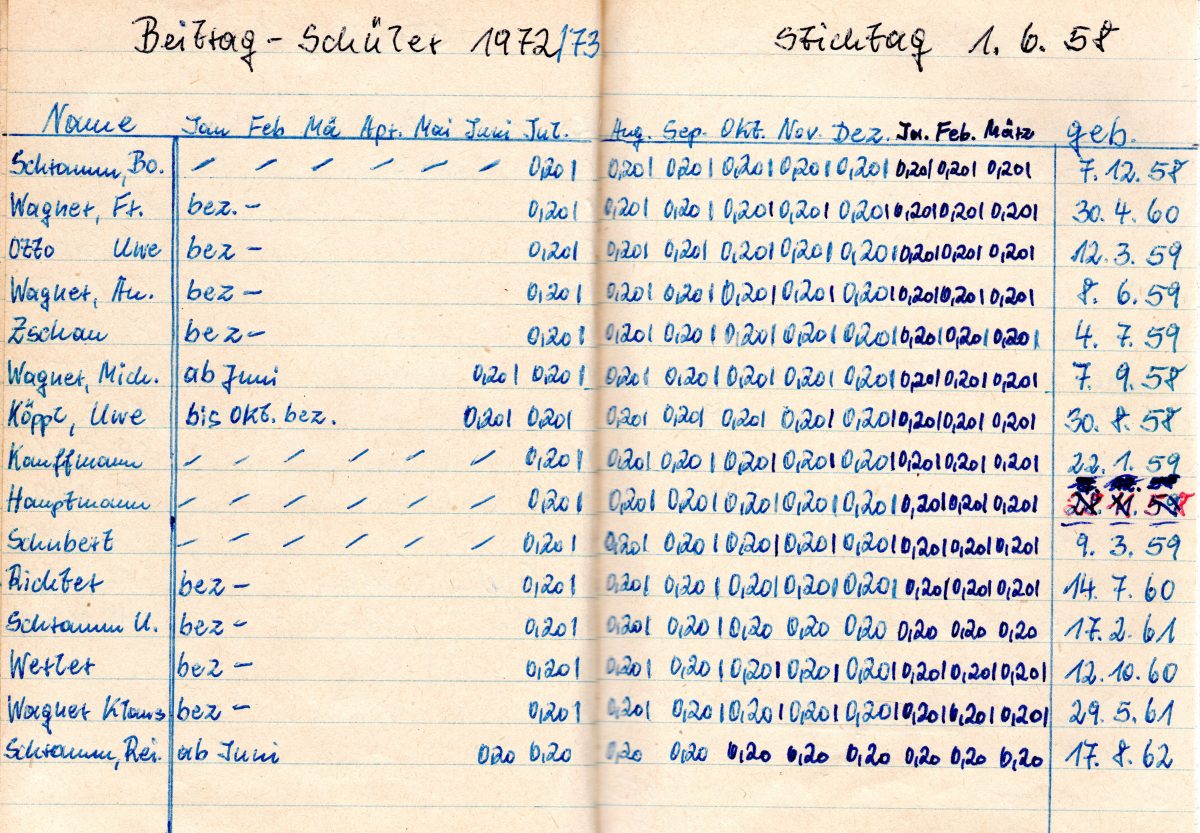 Beitrag - Schüler 1972/73 Stichtag 1. 6. 58
Name Jan Feb Mä Apr. Mai Juni Jul. Aug. Sep. Okt. Nov. Dez. Ja. Feb. März geb.
Schramm, Bo. / / / / / / 0,20 | 0,20 | 0,20 | 0,20 | 0,20 | 0,20 | 0,20 | 0,20 | 0,20 | 7. 12. 58
Wagner, Fr. bez. - 0,20 | 0,20 | 0,20 | 0,20 | 0,20 | 0,20 | 0,20 | 0,20 | 0,20 | 30. 4. 60
Otto Uwe bez - 0,20 | 0,20 | 0,20 | 0,20 | 0,20 | 0,20 | 0,20 | 0,20 | 0,20 | 12. 3. 59
Wagner, An. bez - 0,20 | 0,20 | 0,20 | 0,20 | 0,20 | 0,20 | 0,20 | 0,20 | 0,20 | 8. 6. 59
Zschau bez - 0,20 | 0,20 | 0,20 | 0,20 | 0,20 | 0,20 | 0,20 | 0,20 | 0,20 | 4. 7. 59
Wagner, Mich. ab Juni 0,20 | 0,20 | 0,20 | 0,20 | 0,20 | 0,20 | 0,20 | 0,20 | 0,20 | 0,20 | 7. 9. 58
Köppl, Uwe bis Okt. bez. 0,20 | 0,20 | 0,20 | 0,20 | 0,20 | 0,20 | 0,20 | 0,20 | 0,20 | 0,20 | 30. 8. 58
Kauffmann / / / / / / 0,20 | 0,20 | 0,20 | 0,20 | 0,20 | 0,20 | 0,20 | 0,20 | 0,20 | 22. 1. 59
Hauptmann / / / / / / 0,20 | 0,20 | 0,20 | 0,20 | 0,20 | 0,20 | 0,20 | 0,20 | 0,20 |
Schubert / / / / / / 0,20 | 0,20 | 0,20 | 0,20 | 0,20 | 0,20 | 0,20 | 0,20 | 0,20 | 9. 3. 59
Richter bez - 0,20 | 0,20 | 0,20 | 0,20 | 0,20 | 0,20 | 0,20 | 0,20 | 0,20 | 14. 7. 60
Schramm U. bez - 0,20 | 0,20 | 0,20 | 0,20 0,20 0,20 0,20 0,20 0,20 17. 2. 61
Werler bez - 0,20 | 0,20 | 0,20 | 0,20 | 0,20 | 0,20 | 0,20 | 0,20 | 0,20 | 12. 10. 60
Wagner Klaus bez - 0,20 | 0,20 | 0,20 | 0,20 | 0,20 | 0,20 | 0,20 | 0,20 | 0,20 | 29. 5. 61
Schramm, Rei. ab Juni 0,20 0,20 0,20 0,20 0,20 0,20 0,20 0,20 0,20 0,20 17. 8. 62